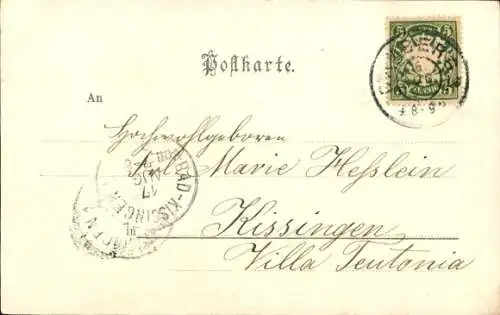 Postkarte.
An
Hochwohlgeboren
Frl. Marie Hesslein
in
Kissingen
Villa Teutonia
BAD-KISSINGEN
17
AUG
5
5
8-9